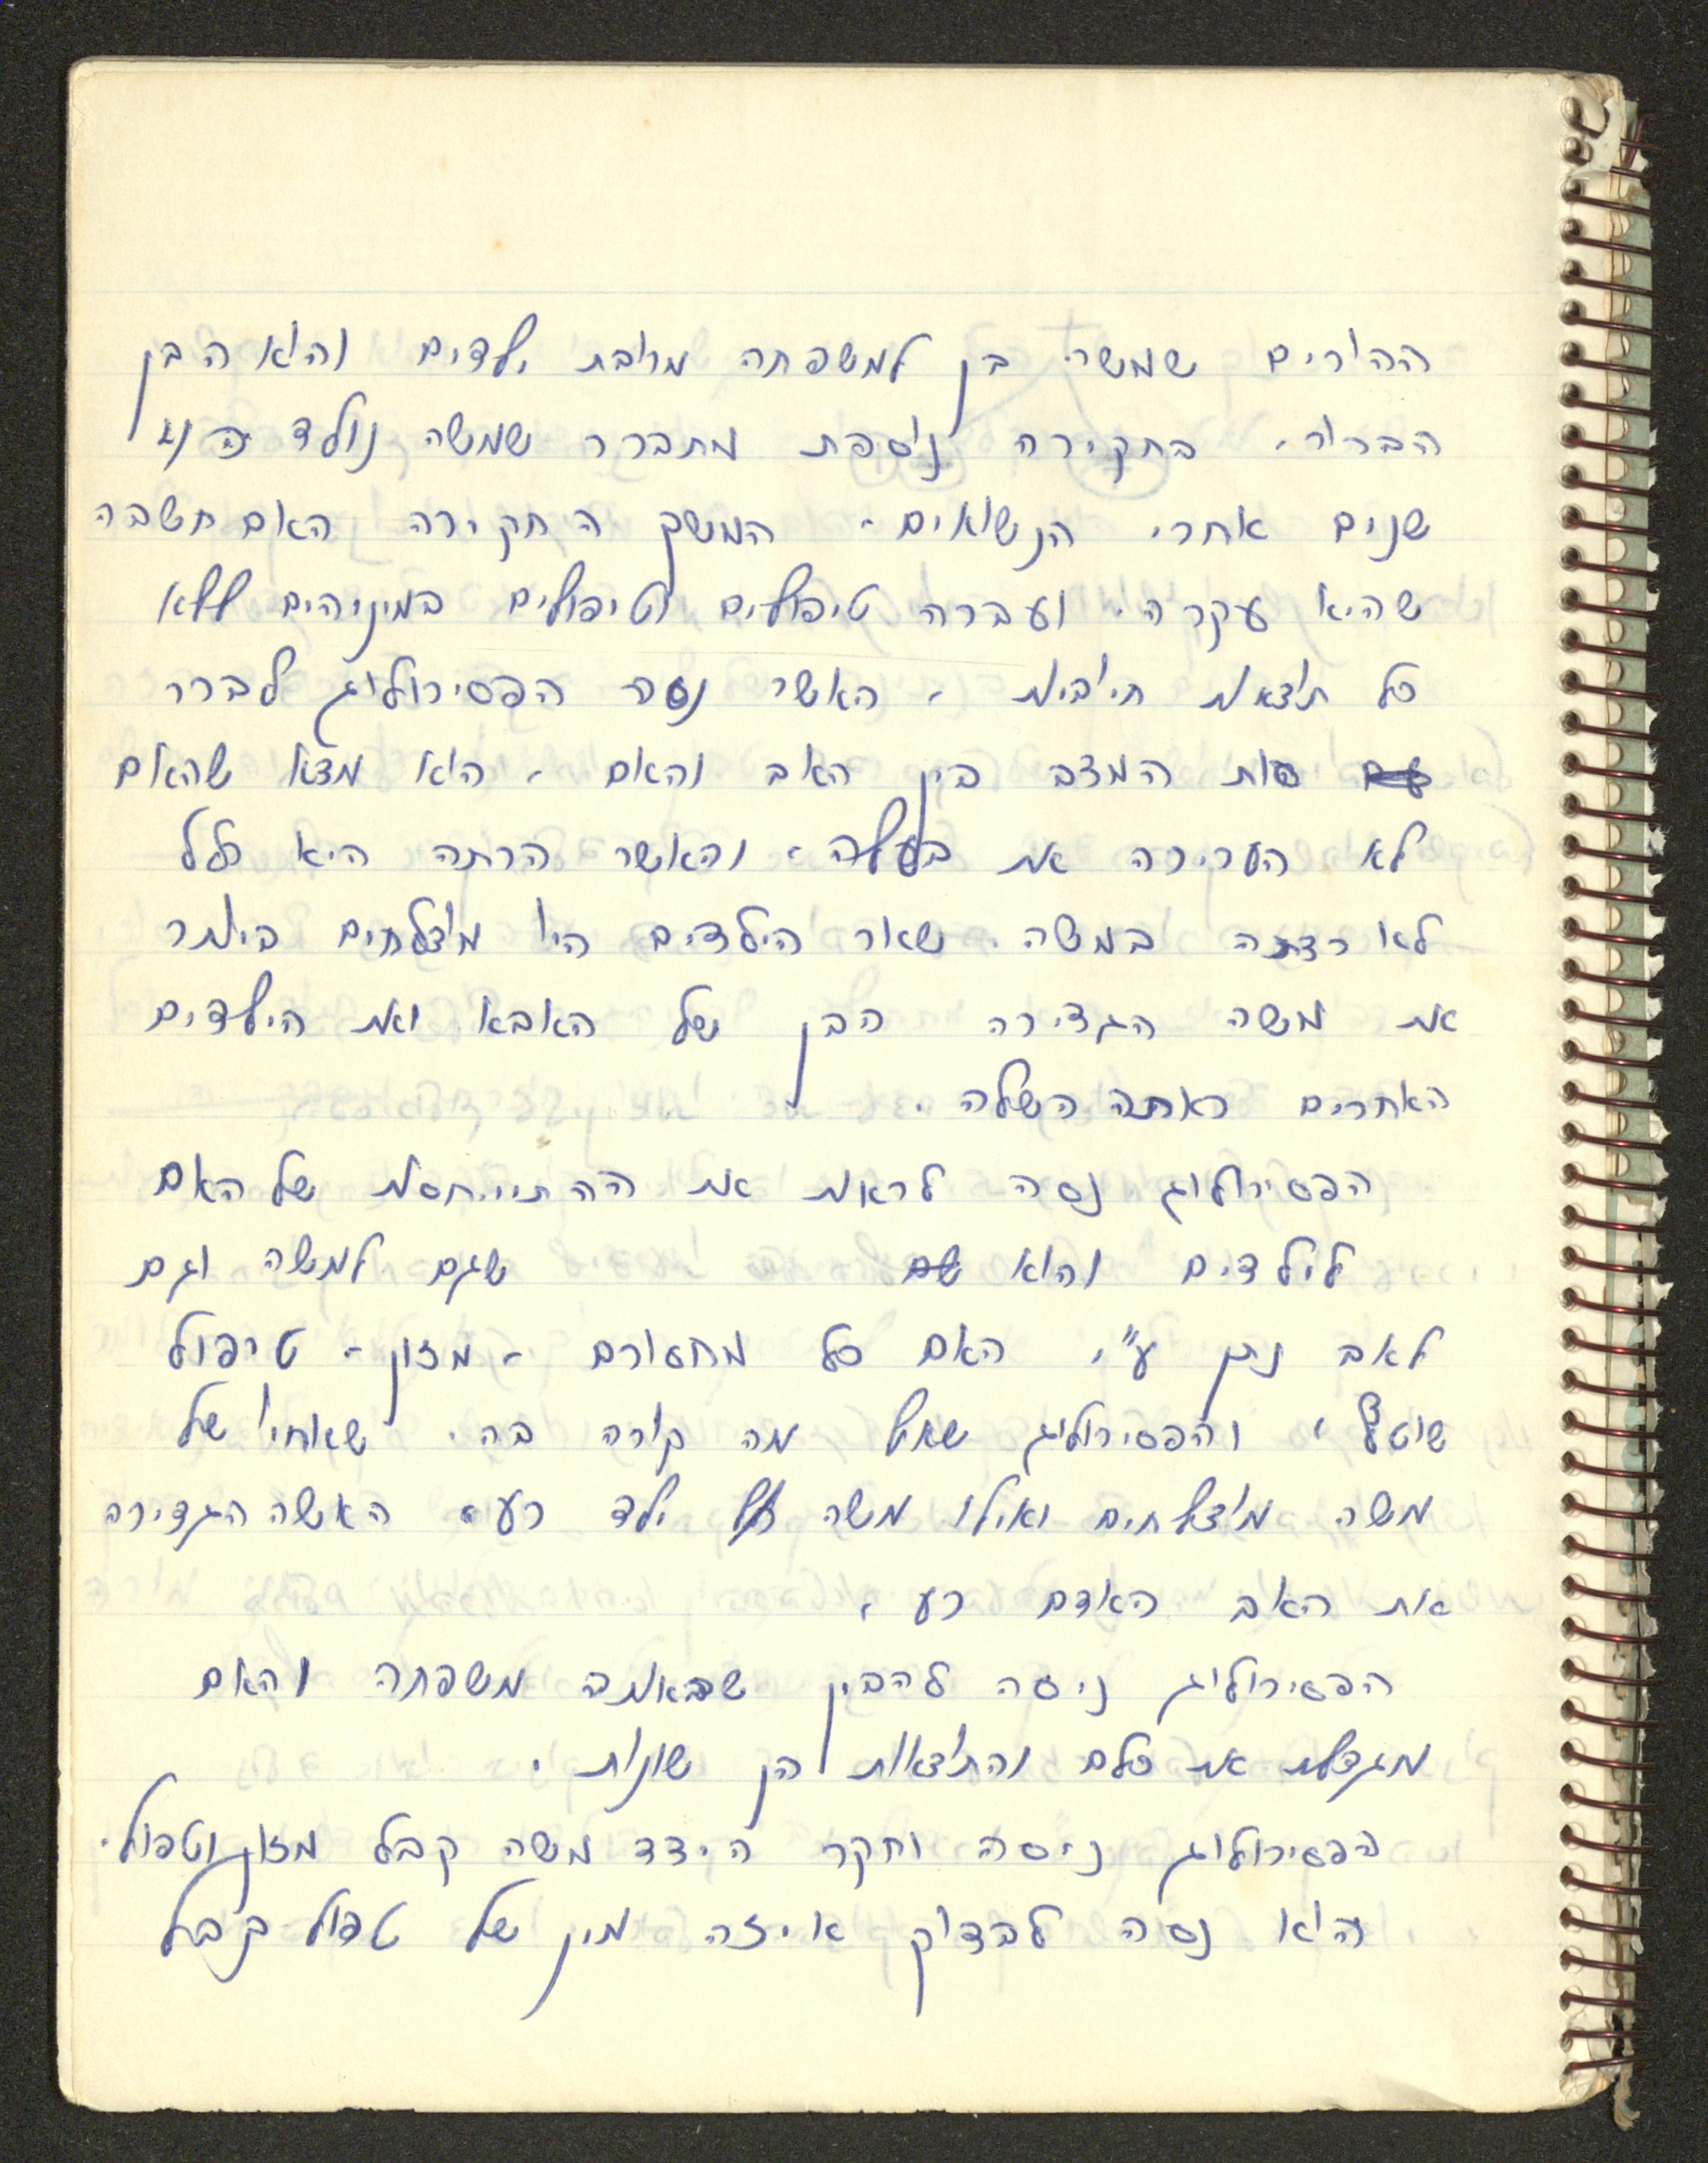 ההורים שמשה בן למשפחה מרובת ילדים והוא הבן
הבכור. בחקירה נוספת מתברר שמשה נולד
שנים אחרי הנשואים. המשך החקירה האם חשבה
שהיא עקרה. ועברה טיפולים וטיפולים במיניהים ללא
כל תוצאות חיוביות. כאשר נסה הפסיכולוג לברר
את המצב בין האב והאם. הוא מצא שהאם
לא העריכה את בעלה. וכאשר הרתה היא כלל
לא רצתה במשה. שאר הילדים היו מוצלחים ביותר
את משה הגדירה הבן של האבא ואת הילדים
האחרים ראתה כשלה.
הפסיכולוג נסה לראות את ההתייחסות של האם
לילדים והוא שגם למשה וגם
לאב נתן ע"י האם כל מחסורם - מזון - טיפול
שוטף, והפסיכולוג שאל מה קורה בה. שאחיו של
משה מוצלחים ואילו משה ילד רע. האשה הגדירה
את האב כאדם רע.
הפסיכולוג ניסה להבין שבאותה משפחה והאם
מגדלת את כולם והתוצאות הן שונות.
הפסיכולוג ניסה וחקר כיצד משה קבל מזון וטפול.
הוא נסה לבדוק איזה מין של טפול קבל